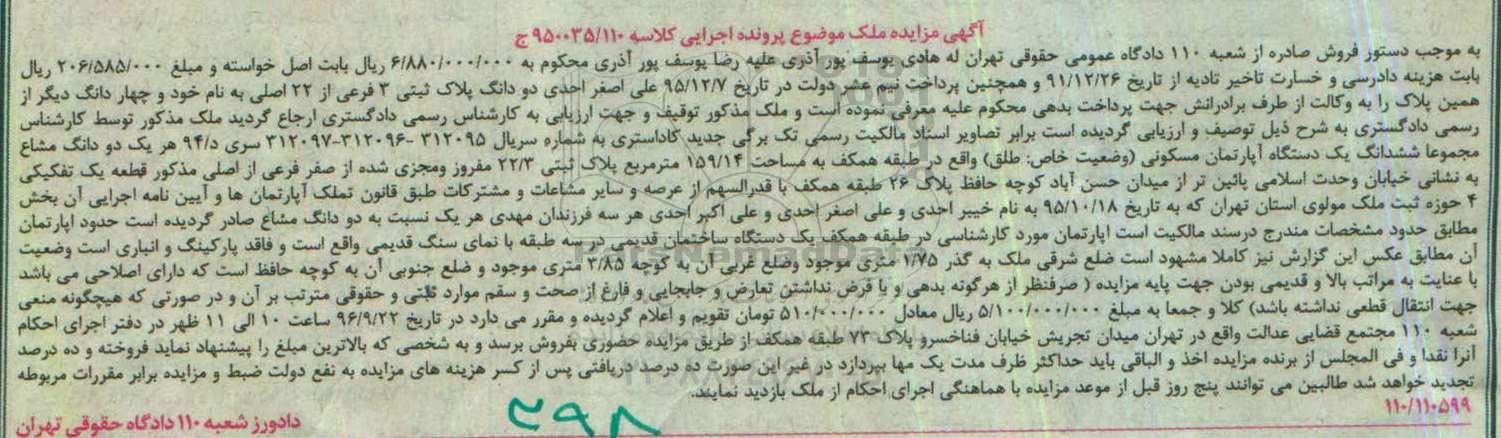 آگهی مزایده ملک موضوع پرونده اجرایی کلاسه ۹۵۰۰۳۵/۱۱۰ ج
به موجب دستور فروش صادره از شعبه ۱۱۰ دادگاه عمومی حقوقی تهران له هادی یوسف پور آذری علیه رضا یوسف پور آذری محکوم به ۶/۸۸۰/۰۰۰/۰۰۰ ریال بابت اصل خواسته و مبلغ ۲۰۶/۵۸۵/۰۰۰ ریال
بابت هزینه دادرسی و خسارت تاخیر تادیه از تاریخ ۹۱/۱۲/۲۶ و همچنین پرداخت نیم عشر دولت در تاریخ ۹۵/۱۲/۷ علی اصغر احدی دو دانگ پلاک ثبتی ۳ فرعی از ۲۲ اصلی به نام خود و چهار دانگ دیگر از
همین پلاک را به وکالت از طرف برادرانش جهت پرداخت بدهی محکوم علیه معرفی نموده است و ملک مذکور توقیف و جهت ارزیابی به کارشناس رسمی دادگستری ارجاع گردید ملک مذکور توسط کارشناس
رسمی دادگستری به شرح ذیل توصیف و ارزیابی گردیده است برابر تصاویر اسناد مالکیت رسمی تک برگی جدید کاداستری به شماره سریال ۳۱۲۰۹۵ -۳۱۲۰۹۶-۳۱۲۰۹۷ سری د/۹۴ هر یک دو دانگ مشاع
مجموعا ششدانگ یک دستگاه آپارتمان مسکونی (وضعیت خاص: طلق) واقع در طبقه همکف به مساحت ۱۵۹/۱۴ مترمربع پلاک ثبتی ۲۲/۳ مفروز ومجزی شده از صفر فرعی از اصلی مذکور قطعه یک تفکیکی
به نشانی خیابان وحدت اسلامی پائین تر از میدان حسن آباد کوچه حافظ پلاک ۲۶ طبقه همکف با قدرالسهم از عرصه و سایر مشاعات و مشترکات طبق قانون تملک آپارتمان ها و آیین نامه اجرایی آن بخش
۴ حوزه ثبت ملک مولوی استان تهران که به تاریخ ۹۵/۱۰/۱۸ به نام خیبر احدی و علی اصغر احدی و علی اکبر احدی هر سه فرزندان مهدی هر یک نسبت به دو دانگ مشاع صادر گردیده است حدود اپارتمان
مطابق حدود مشخصات مندرج درسند مالکیت است اپارتمان مورد کارشناسی در طبقه همکف یک دستگاه ساختمان قدیمی در سه طبقه با نمای سنگ قدیمی واقع است و فاقد پارکینگ و انباری است وضعیت
آن مطابق عکس این گزارش نیز کاملا مشهود است ضلع شرقی ملک به گذر ۱/۷۵ متری موجود وضلع غربی آن به کوچه ۳/۸۵ متری موجود و ضلع جنوبی آن به کوچه حافظ است که دارای اصلاحی می باشد
با عنایت به مراتب بالا و قدیمی بودن جهت پایه مزایده ( صرفنظر از هرگونه بدهی و با فرض نداشتن تعارض و جابجایی و فارغ از صحت و سقم موارد ثبتی و حقوقی مترتب بر آن و در صورتی که هیچگونه منعی
جهت انتقال قطعی نداشته باشد) کلا و جمعا به مبلغ ۵/۱۰۰/۰۰۰/۰۰۰ ریال معادل ۵۱۰/۰۰۰/۰۰۰ تومان تقویم و اعلام گردیده و مقرر می دارد در تاریخ ۹۶/۹/۲۲ ساعت ۱۰ الی ۱۱ ظهر در دفتر اجرای احکام
شعبه ۱۱۰ مجتمع قضایی عدالت واقع در تهران میدان تجریش خیابان فناخسرو پلاک ۷۳ طبقه همکف از طریق مزایده حضوری بفروش برسد و به شخصی که بالاترین مبلغ را پیشنهاد نماید فروخته و ده درصد
آنرا نقدا و فی المجلس از برنده مزایده اخذ و الباقی باید حداکثر ظرف مدت یک مها بپردازد در غیر این صورت ده درصد دریافتی پس از کسر هزینه های مزایده به نفع دولت ضبط و مزایده برابر مقررات مربوطه
تجدید خواهد شد طالبین می توانند پنج روز قبل از موعد مزایده با هماهنگی اجرای احکام از ملک بازدید نمایند.
۱۱۰/۱۱۰۵۹۹
دادورز شعبه ۱۱۰ دادگاه حقوقی تهران
۳۹۸